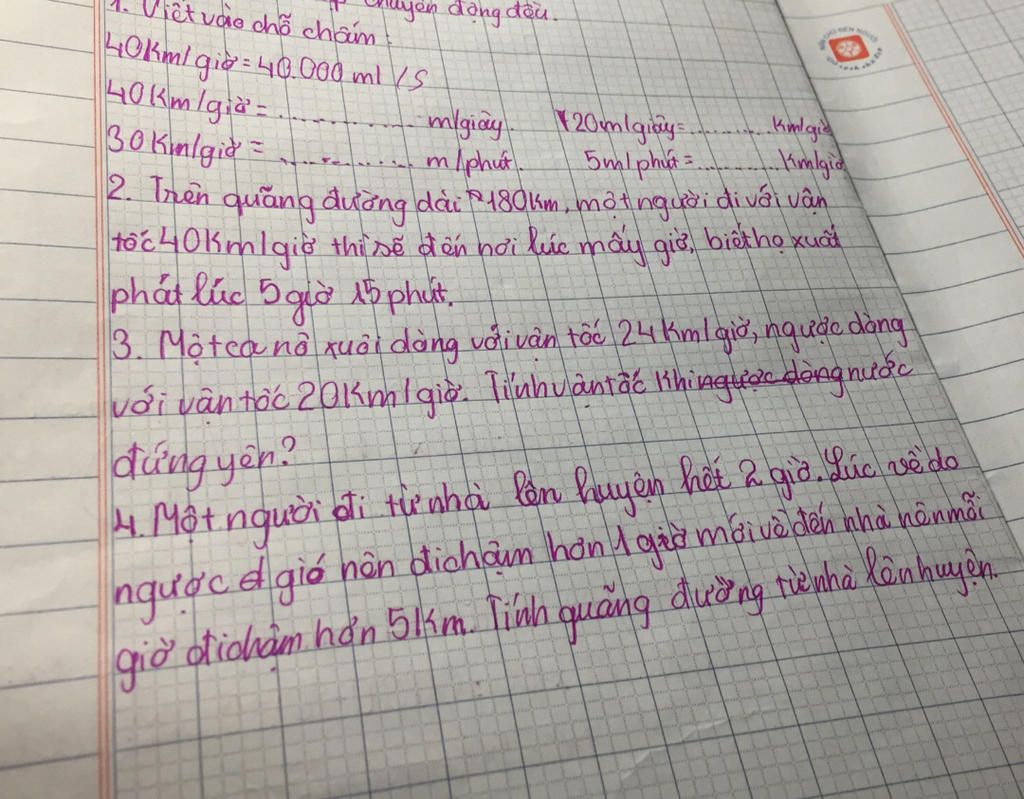 1. Viết vào chỗ chấm: chuyển động đều.
40Km/giờ = 40.000ml/S
40Km/giờ = .............. m/giây. 120m/giây = .......... Km/giờ
30Km/giờ = .............. m/phút. 5m/phút = .......... Km/giờ
2. Trên quãng đường dài 180Km, một người đi với vận
tốc 40Km/giờ thì sẽ đến nơi lúc mấy giờ, biết họ xuất
phát lúc 5 giờ 15 phút.
3. Một ca nô xuôi dòng với vận tốc 24Km/giờ, ngược dòng
với vận tốc 20Km/giờ. Tính vận tốc khi ngược dòng nước
đứng yên?
4. Một người đi từ nhà lên huyện hết 2 giờ. Lúc về do
ngược gió nên đi chậm hơn 1 giờ mới về đến nhà nên mỗi
giờ đi chậm hơn 5Km. Tính quãng đường từ nhà lên huyện.